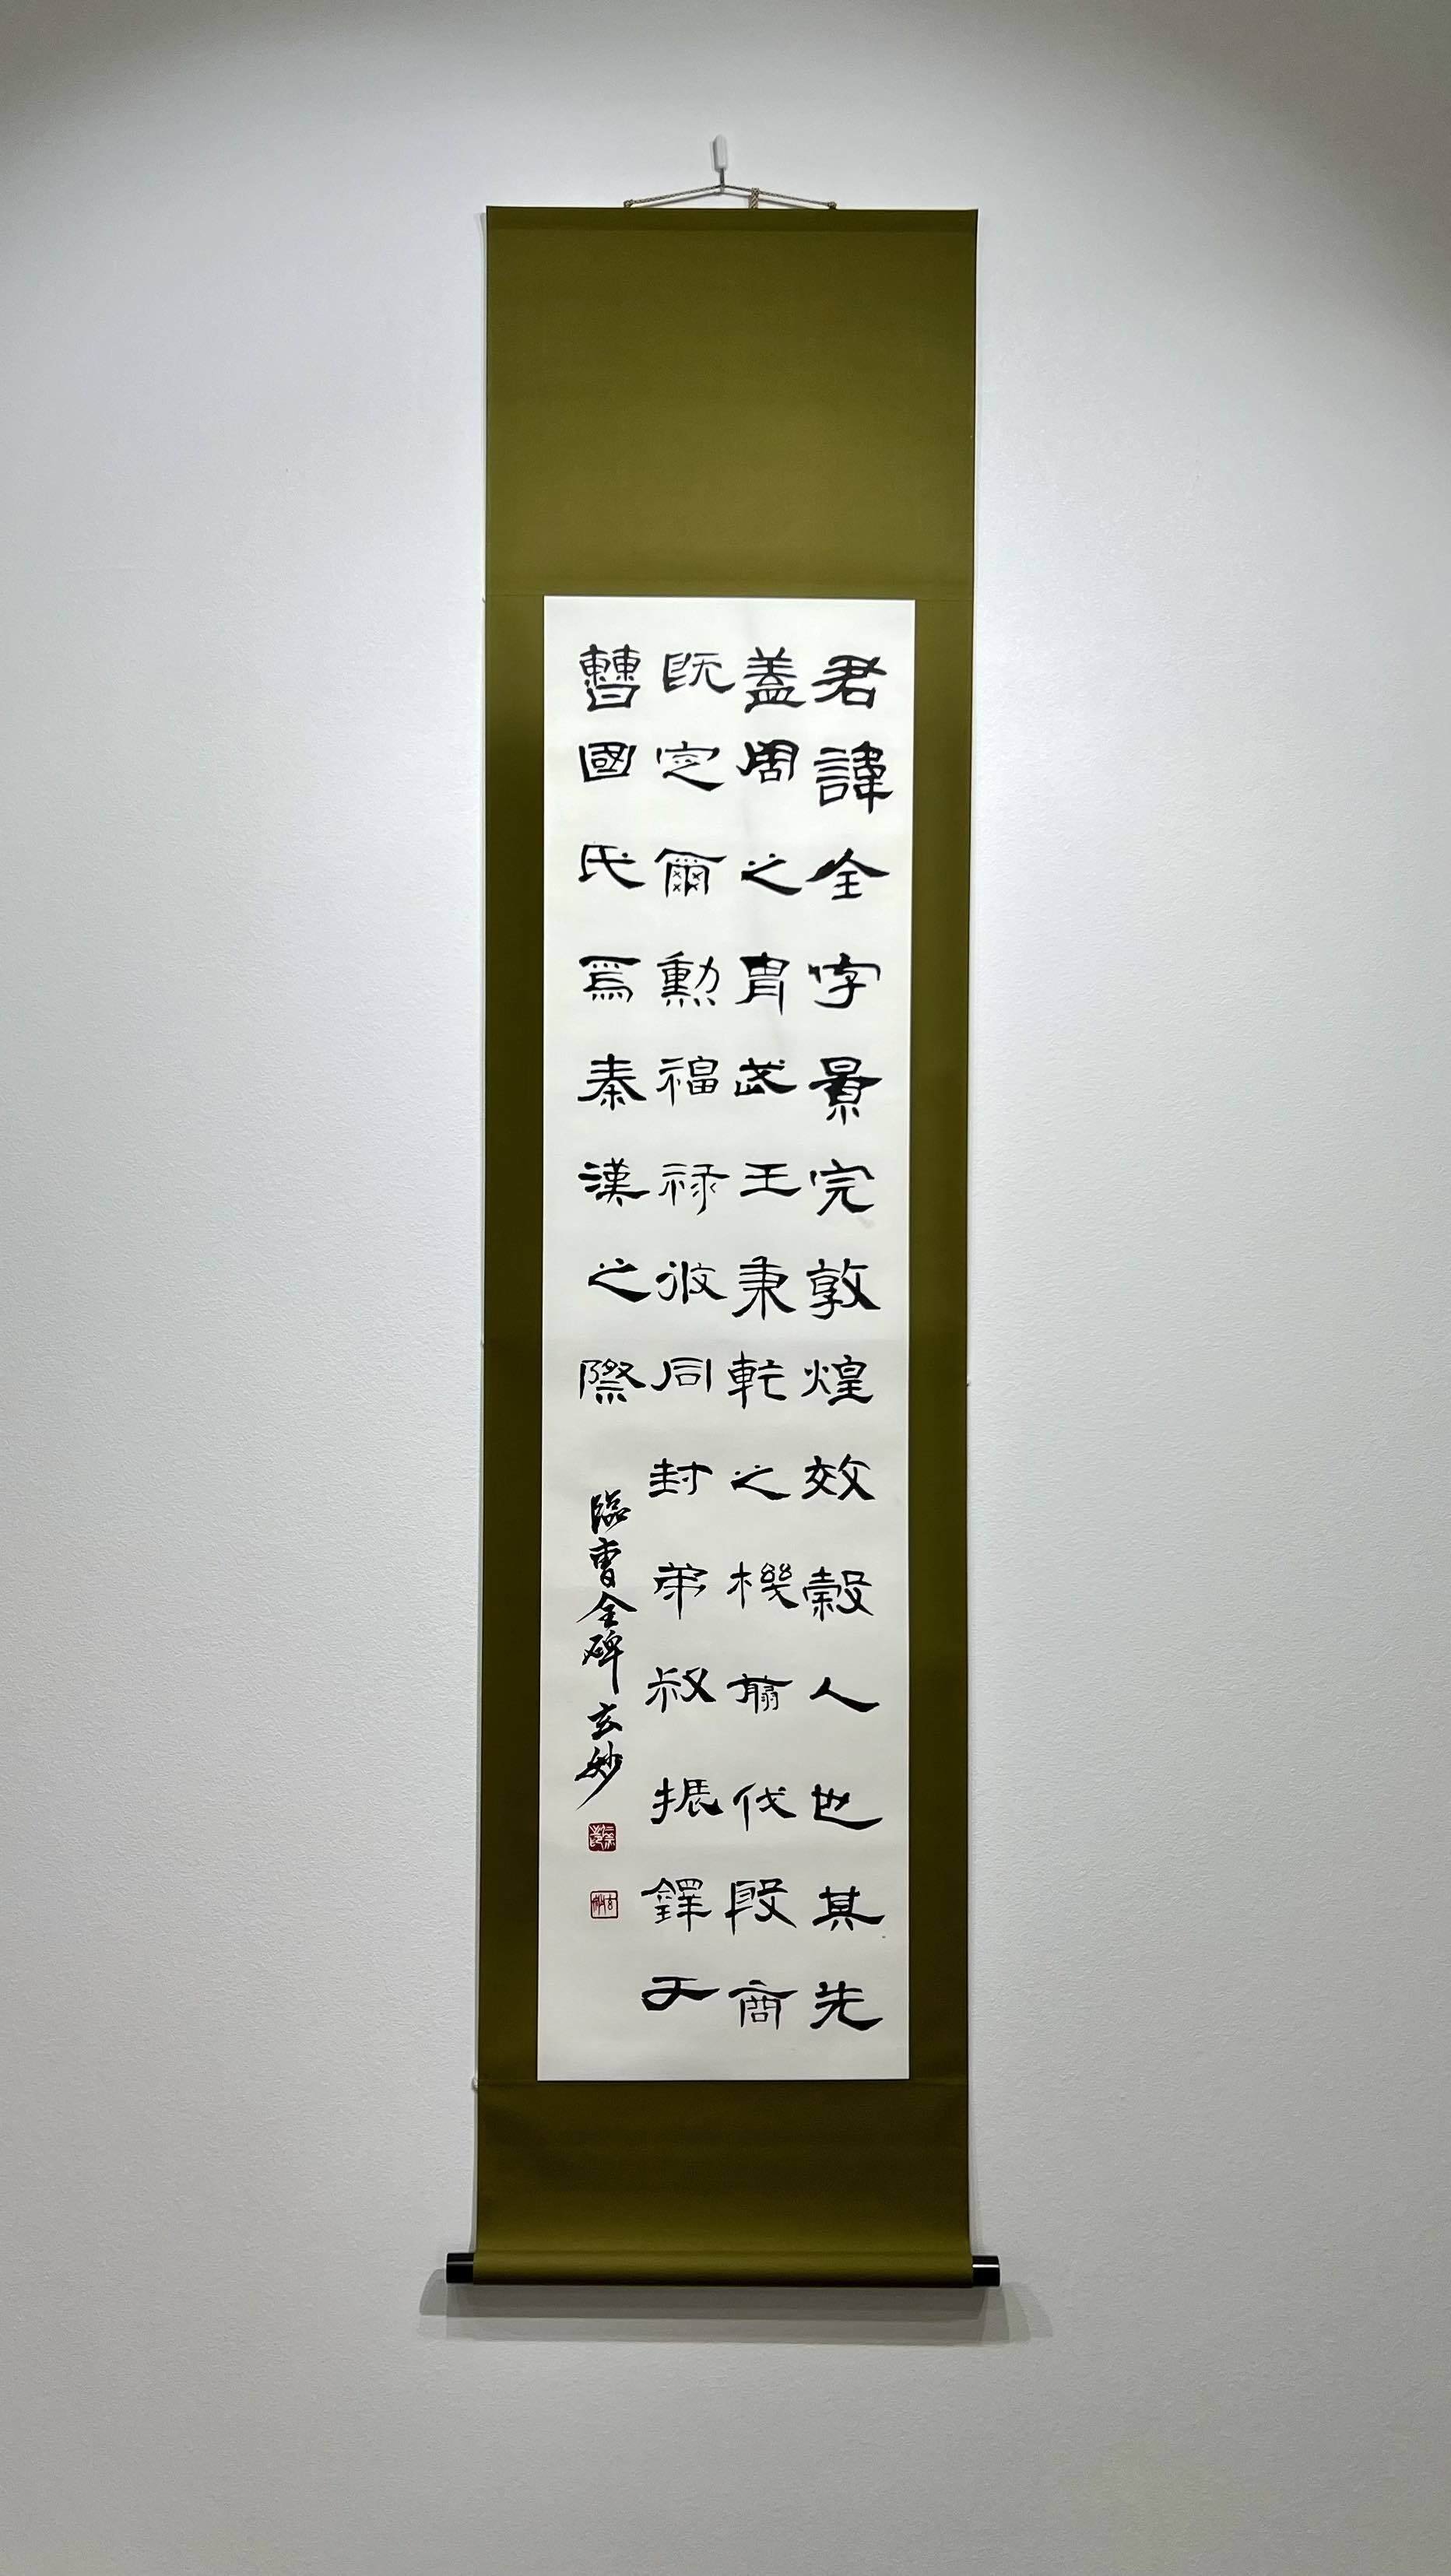 君諱全字景完敦煌效穀人也其先
蓋周之胄武王秉乾之機翦伐殷商
既定爾勳福祿攸同封弟叔振鐸于
曹國氏焉秦漢之際
臨曹全碑玄妙
玄妙